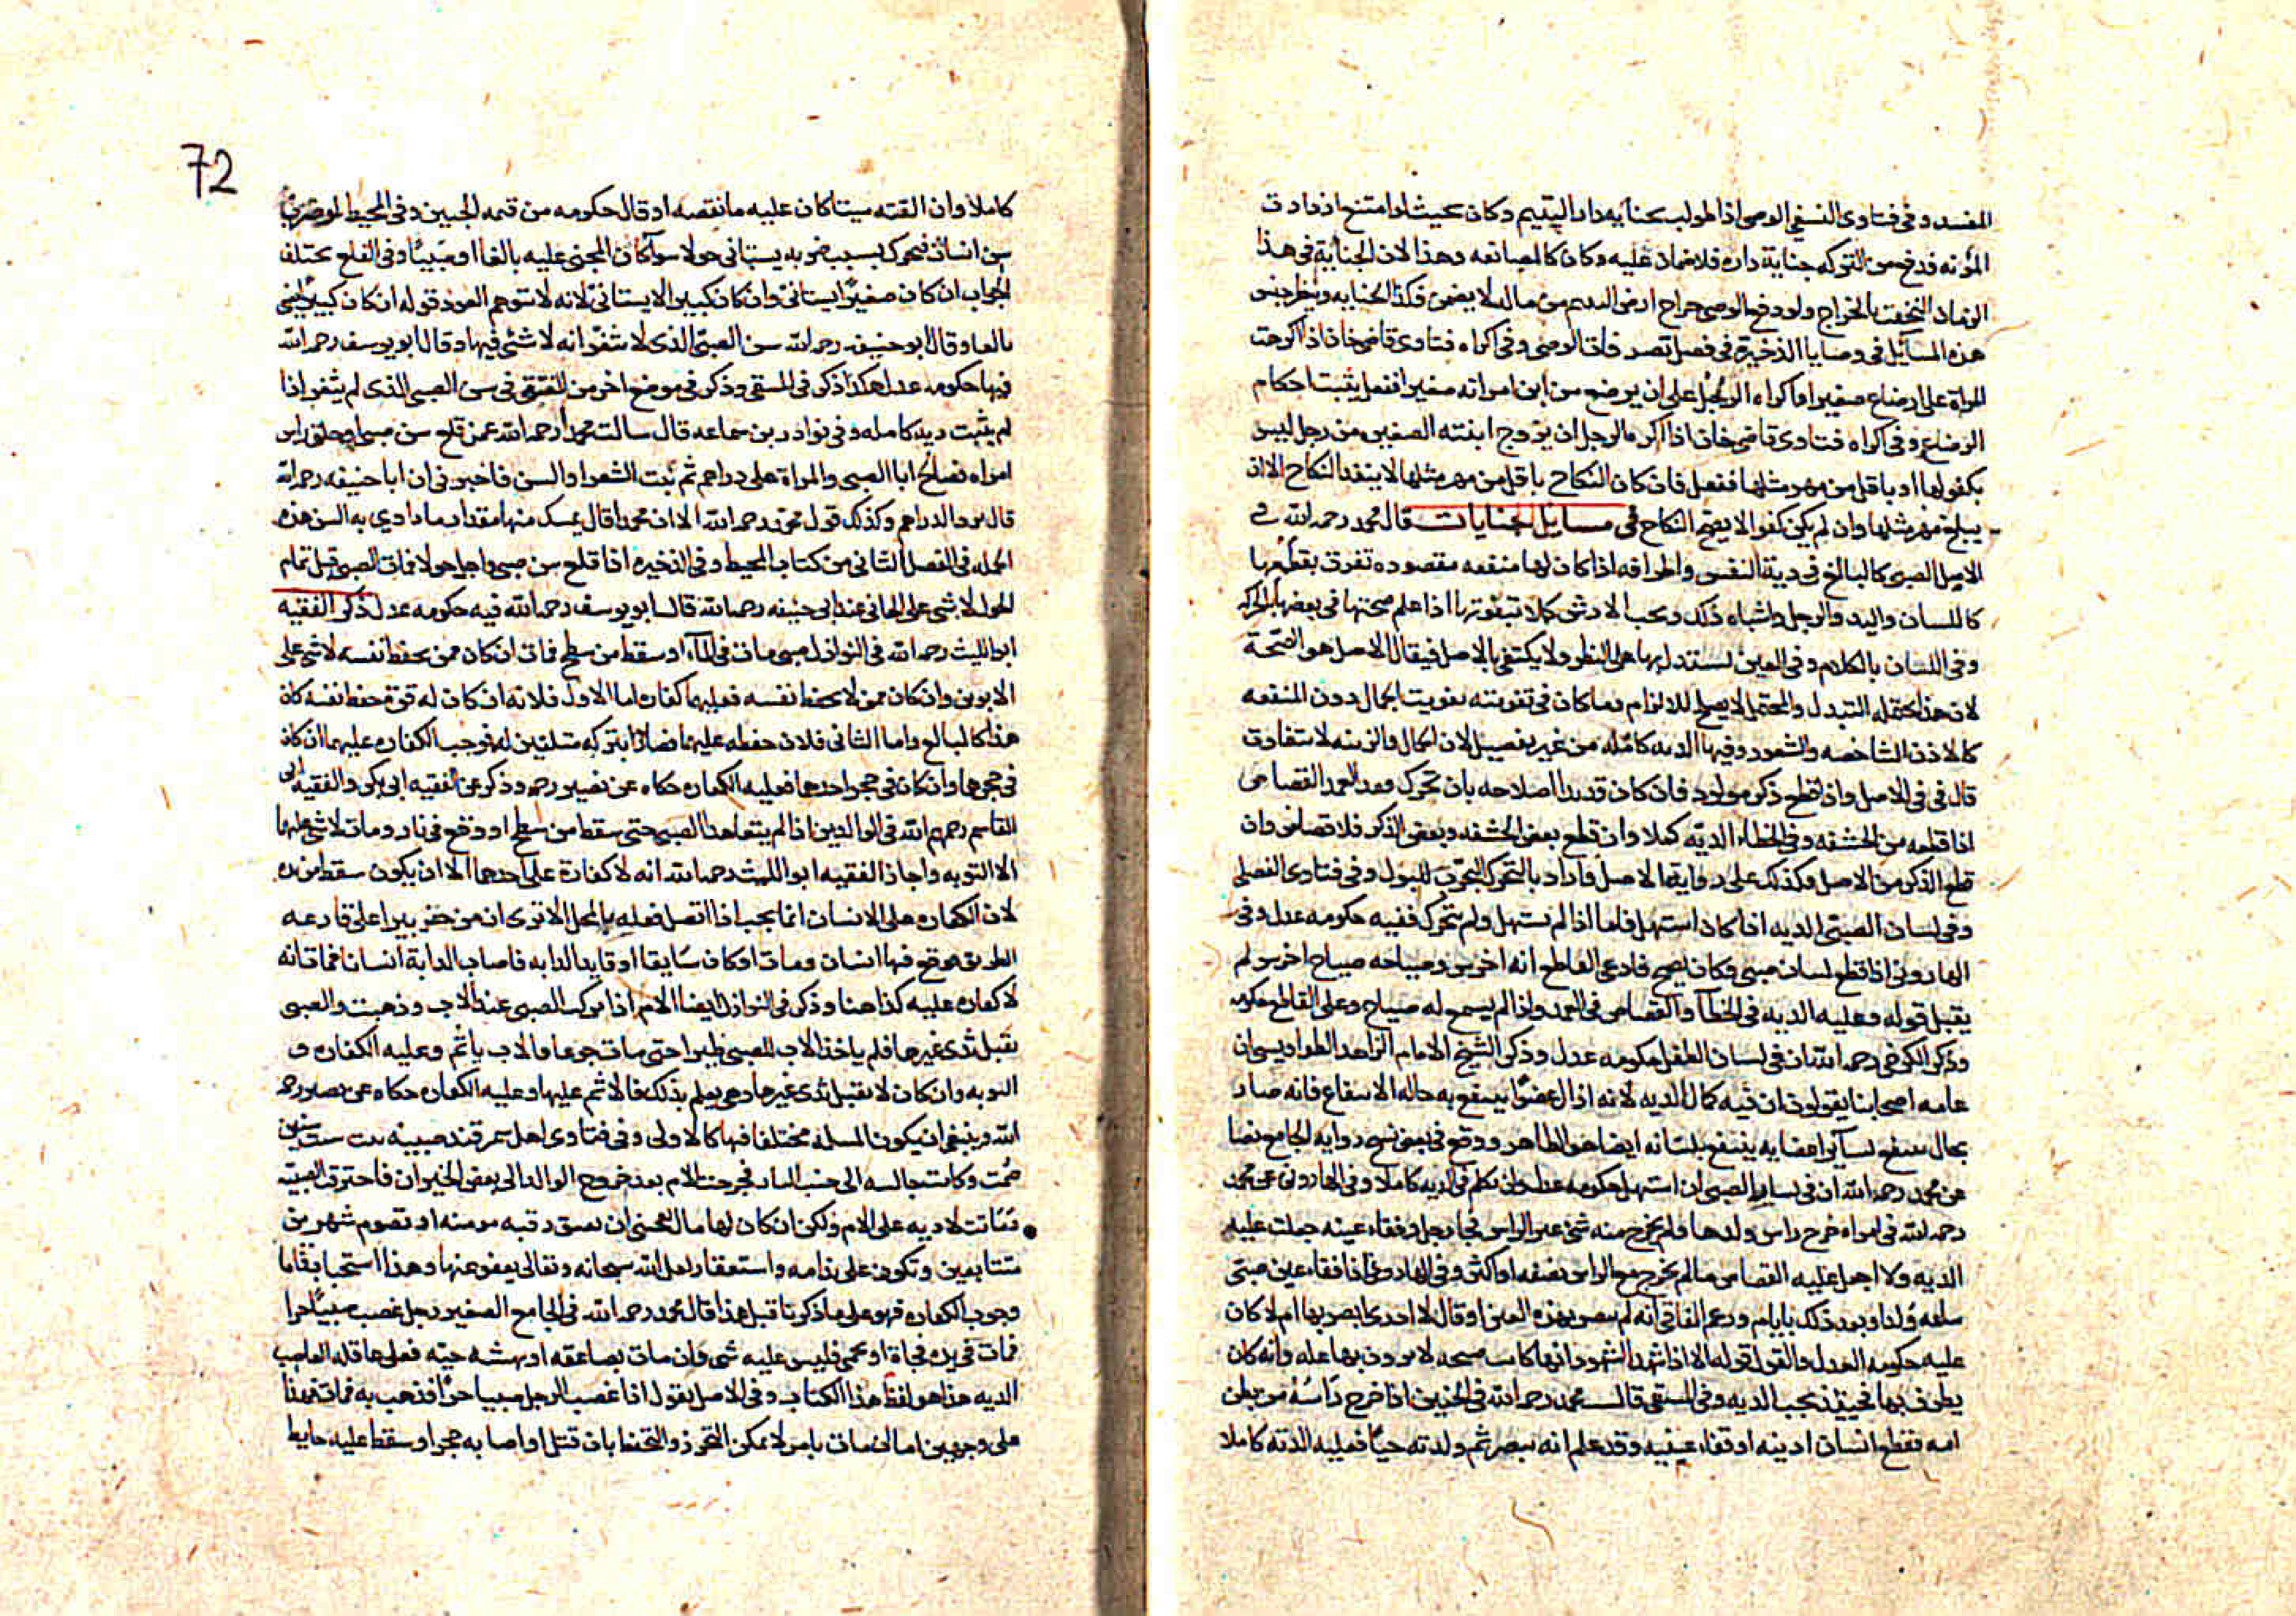 المفسد وفي فتاوى النسفي الوصي اذا طولب بجناية دار اليتيم وكان بحيث لو امتنع ازدادت
المؤنة فدفع من التركة جناية داره فلا ضمان عليه وكان كالمصانعة وهذا لان الجناية في هذا
الزمان التحقت بالخراج ولو دفع الوصي خراج ارض اليتيم من ماله لا يضمن فكذا الجناية
هذه المسايل في وصايا الذخيرة في فصل تصرفات الوصي وفي اكراه فتاوى قاضي خان اذا اكرهت
المراة على ارضاع صغير او اكراه الرجل على ان يرضع من لبن امراته صغيرا ففعل يثبت احكام
الرضاع وفي اكراه فتاوى قاضي خان اذا اكره الرجل ان يزوج ابنته الصغيرة من رجل ليس
بكفو لها او باقل من مهر مثلها ففعل فان كان النكاح باقل من مهر مثلها لا ينفذ النكاح الا ان
يبلغ مهر مثلها وان لم يكن كفوا لا يصح النكاح في مسايل الجنايات قال محمد رحمه الله في
الاصل الصبي كالبالغ في دية النفس واطرافه اذا كان لها منفعه مقصوده تفوت بقطعها
كاللسان واليد والرجل واشباه ذلك ويجب الارش كملا بتفويتها اذا علم صحتها في بعضها بالحركه
وفي اللسان بالكلام وفي العين يستدل بها على النظر ولا يكتفي بالاصل فيقال الاصل هو الصحة
لان هذا يحتمل التبدل والمحتمل لا يصلح للالزام وما كان في تفويته تفويت الجمال دون المنفعه
كالاذن الشاخصه والشعور وفيها الديه كامله من غير تفصيل لان الجمال والزينه لا تتفاوت
قال في الاصل واذا قطع ذكر مولود فان كان قد بدا صلاحه بان تحرك فعند العمد القصاص
اذا قطعه من الحشفه وفي الخطاء الدية كملا وان قطع بعض الحشفه وبعض الذكر فلا قصاص وان
قطع الذكر من الاصل وكذلك على رواية الاصل واراد بالتحرك التحرك للبول وفي فتاوى الفضلي
وفي لسان الصبي الديه اذا كان استهل فاما اذا لم يستهل ولم يتحرك ففيه حكومه عدل وفي
الهاروني اذا قطع لسان صبي وكان يصيح فادعى القاطع انه اخرس وصياحه صياح اخرس لم
يقبل قوله وعليه الديه في الخطا والقصاص في العمد واذا لم يسمع له صياح وعلى القاطع حكومه
وذكر الكرخي رحمه الله ان في لسان الطفل حكومه عدل وذكر الشيخ الامام الزاهد الطواويسي ان
عامه اصحابنا يقولون ان فيه كمال الديه لانه ازال عضوا ينتفع به حاله الانتفاع فانه صار
بحال ينتفع بساير اعضايه ينتفع بلسانه ايضا هو الظاهر ووقع في بعض نسخ رواية الجامع نصا
عن محمد رحمه الله ان في لسان الصبي ان استهل حكومه عدل وان تكلم ففي الديه كاملا وفي الهاروني عن محمد
رحمه الله في امراه خرج راس ولدها فلم يخرج منه شي غير الراس فجا رجل وفقاء عينه جعلت عليه
الديه ولا اجعل عليه القصاص ما لم يخرج مع الراس نصفه او اكثر وفي الهاروني اذا فقاء عين صبي
ساعة ولد او بعد ذلك بايام وزعم الفاقي انه لم يبصر بهذه العين او قال لا ادري ابصر بها ام لا كان
عليه حكومه العدل والقول قوله الا اذا شهد الشهود انها كانت صحيحه لا يرون بها علة وانه كان
يطرف بها فحينئذ يجب الديه وفي المنتقى قال محمد رحمه الله في الجنين اذا خرج راسه من بطن
امه فقطع انسان اذنيه او فقاء عينيه وقد علم انه يبصر ثم ولدته حيا فعليه الدية كاملا
72
كاملا وان القته ميتا كان عليه ما نقصه او قال حكومه من قيمه الجنين وفي المحيط لو ضرب
سن انسان فتحرك بسبب ضربه يستاني حولا سوآ كان المجني عليه بالغا او صبيا وفي القلع يختلف
الجواب ان كان صغيرا يستاني وان كان كبيرا لا يستاني لانه لا يتوهم العود قوله ان كان كبيرا يعني
بالغا وقال ابو حنيفه رحمه الله سن الصبي الذي لا يثغر انه لا شئ فيها وقال ابو يوسف رحمه الله
فيها حكومه عدل هكذا ذكر في المنتقى وذكر في موضع اخر من المنتقى في سن الصبي الذي لم يثغر اذا
لم يثبت دية كامله وفي نوادر بن سماعه قال سالت محمدا رحمه الله عمن قلع سن صبي او حلق راس
امراه فصالح ابا الصبي والمراة على دراهم ثم نبت الشعر او السن فاخبرني ان ابا حنيفه رحمه الله
قال يرد الدراهم وكذلك قول محمد رحمه الله الا ان محمدا قال يمسك منها مقدار ما داوي به السن هذه
الجمله في الفصل الثاني من كتاب المحيط وفي الذخيره اذا قلع سن صبي واجل حولا فمات الصبي قبل تمام
الحول لا شي على الجاني عند ابي حنيفه رحمه الله قال ابو يوسف رحمه الله فيه حكومه عدل ذكر الفقيه
ابو الليث رحمه الله في النوازل صبي مات في الماء او سقط من سطح فمات ان كان ممن يحفظ نفسه لا شي على
الابوين وان كان ممن لا يحفظ نفسه فعليهما كفارة اما الاول فلانه ان كان له قوة حفظ نفسه كان
هذا كالبالغ واما الثاني فلان حفظه عليهما فصارا بتركه متلفين له فوجب الكفاره عليهما ان كان
في حجرهما وان كان في حجر احدهما فعليه الكفاره حكاه عن نصير رحمه وذكر عن الفقيه ابي بكر والفقيه ابي
القاسم رحمهم الله في الوالدين اذا لم يتعاهدا الصبي حتى سقط من سطح او وقع في نار ومات لا شي عليهما
الا التوبه واجاز الفقيه ابو الليث رحمه الله انه لا كفارة على احدهما الا ان يكون سقط من يده
لان الكفاره على الانسان انما يجب اذا اتصل فعله بالمحل الا ترى ان من حفر بيرا على قارعه
الطريق فوقع فيها انسان ومات او كان سايقا او قايد الدابه فاصاب الدابة انسانا فمات انه
لا كفاره عليه كذا هنا وذكر في النوازل ايضا الام اذا تركت الصبي عند الاب وذهبت والصبي
يقبل ثدى غيرها فلم ياخذ الاب للصبي ظيرا حتى مات جوعا والاب ياثم وعليه الكفاره و
التوبه وان كان لا يقبل ثدى غيرها وهي يعلم بذلك فالاثم عليها وعليه الكفاره حكاه عن نصير رحمه
الله وينبغي ان يكون المسله مختلفا فيها كالاولى وفي فتاوى اهل سمرقند صبيه بنت ست سنين
حمت وكانت جالسه الى جنب النار فخرجت الام بعد خروج الوالد الى بعض الجيران فاحترقت الصبيه
فماتت لا ديه على الام ولكن ان كان لها مال يعجبني ان يعتق رقبه مومنه او تصوم شهرين
متتابعين وتكون على ندامه واستغفار لعل الله سبحانه وتعالى يعفو عنها وهذا استحبابا فاما
وجوب الكفاره فهو على ما ذكرنا قبل هذا قال محمد رحمه الله في الجامع الصغير رجل غصب صبيا حرا
فمات في يده فجاة او بحمى فليس عليه شى فان مات بصاعقه او نهشه حيه فعلى عاقله الغاصب
الديه هذا هو لفظ هذا الكتاب وفي الاصل يقول اذا غصب الرجل صبيا حرا فذهب به فمات فهذا
على وجهين اما ان مات بامر لا يمكن التحرز والتحفظ بان قتل او اصابه حجر او سقط عليه حايط